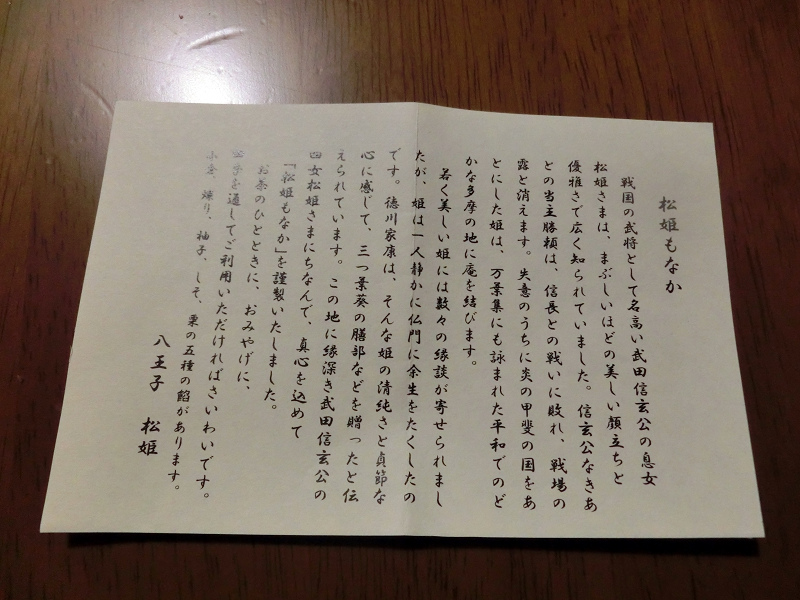 松姫もなか
戦国の武将として名高い武田信玄公の息女
松姫さまは、まぶしいほどの美しい顔立ちと
優雅さで広く知られていました。信玄公なきあ
との当主勝頼は、信長との戦いに敗れ、戦場の
露と消えます。失意のうちに炎の甲斐の国をあ
とにした姫は、万葉集にも詠まれた平和でのど
かな多摩の地に庵を結びます。
若く美しい姫には数々の縁談が寄せられまし
たが、姫は一人静かに仏門に余生をたくしたの
です。徳川家康は、そんな姫の清純さと貞節な
心に感じて、三つ葉葵の膳部などを贈ったと伝
えられています。この地に縁深き武田信玄公の
四女松姫さまにちなんで、真心を込めて
「松姫もなか」を謹製いたしました。
お茶のひとときに、おみやげに、
四季を通してご利用いただければさいわいです。
小倉、煉り、柚子、しそ、栗の五種の餡があります。
八王子 松姫